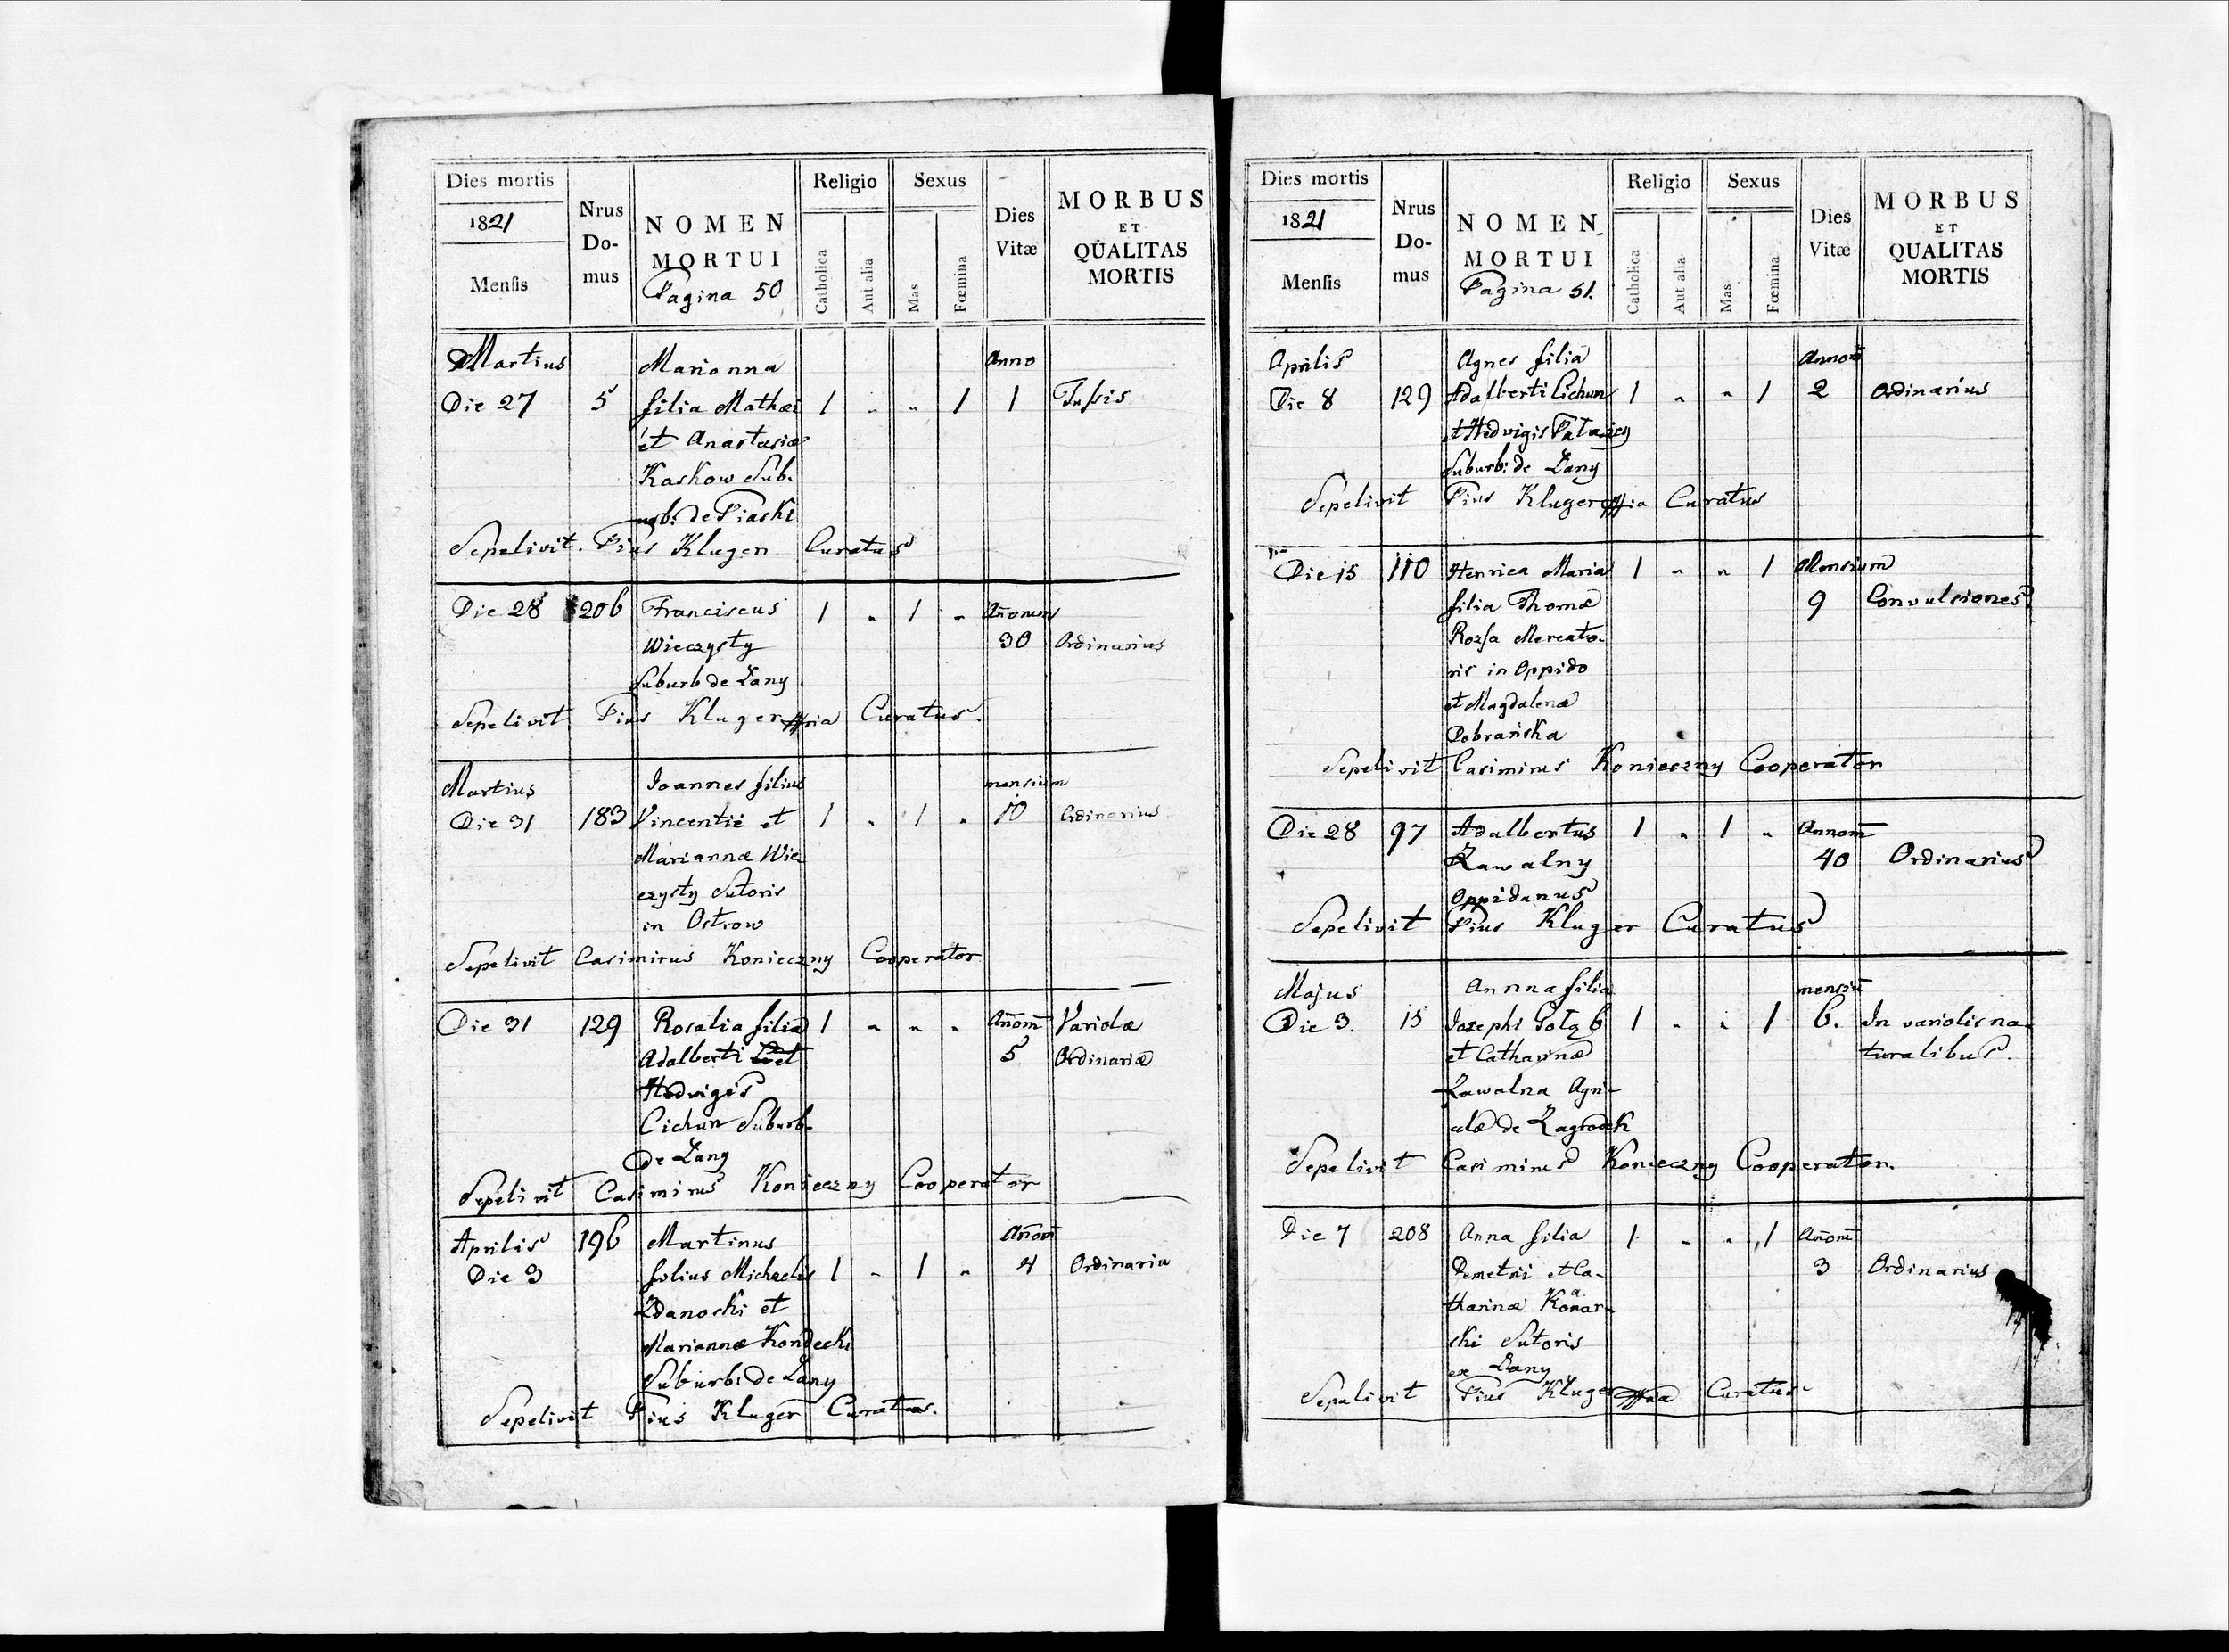 Dies mortis
1821
Mensis
Nrus Do- mus
NOMEN MORTUI
Pagina 50
Religio
Catholica
Aut alia
Sexus
Mas
Fœmina
Dies Vitæ
MORBUS ET QUALITAS MORTIS
Martius Marianna Anno
Die 27 5 filia Mathæi 1 " " 1 1 Tussis
et Anastasiæ
Kaskow Sub-
urb: de Piaski
Sepelivit. Pius Kluger Curatus
Die 28 206 Franciscus 1 " 1 " Añorum
Wieczysty 30 Ordinarius
Suburb de Łany
Sepelivit Pius Kluger Curatus.
Martius Joannes filius mensium
Die 31 183 Vincentii et 1 " 1 " 10 Ordinarius
Mariannæ Wie
czysty Sutoris
in Ostrow
Sepelivit Casimirus Konieczny Cooperator
Die 31 129 Rosalia filia 1 " " " Añom̄ Variolæ
Adalberti et 5 Ordinariæ
Hedvigis
Cichun Suburb.
de Łany
Sepelivit Casimirus Konieczny Cooperator
Aprilis 196 Martinus Añom̄
Die 3 folius Michaelis 1 " 1 " 4 Ordinaria
Zdanoski et
Mariannæ Kondecki
Suburb: de Łany
Sepelivit Pius Kluger Curatus.
Dies mortis
1821
Mensis
Nrus Do- mus
NOMEN MORTUI
Pagina 51.
Religio
Catholica
Aut alia
Sexus
Mas
Fœmina
Dies Vitæ
MORBUS ET QUALITAS MORTIS
Aprilis Agnes filia Annom̄
Die 8 129 Adalberti Cichun 1 " " 1 2 Ordinarius
et Hedvigis
Suburb: de Łany
Sepelivit Pius Kluger Curatus
Die 15 110 Henrica Maria 1 " " 1 Mensium
filia Thomæ 9 Convulsiones
Rozsa Mercato-
ris in Oppido
et Magdalenæ
Dobrańska
Sepelivit Casimirus Konieczny Cooperator
Die 28 97 Adalbertus 1 " 1 " Annom̄
Zawalny 40 Ordinarius
Oppidanus
Sepelivit Pius Kluger Curatus
Majus Annna filia mensiū
Die 3. 15 Josephi Gołąb 1 " " 1 6. In variolis na-
et Catharinæ turalibus.
Zawalna Agri-
colæ de Zagrodek
Sepelivit Casimirus Konieczny Cooperator.
Die 7 208 Anna filia 1 " " 1 Añom̄
Demetrii et Ca- 3 Ordinarius
tharinæ Konar-
ski Sutoris
ex Łany
Sepelivit Pius Kluger Curatus